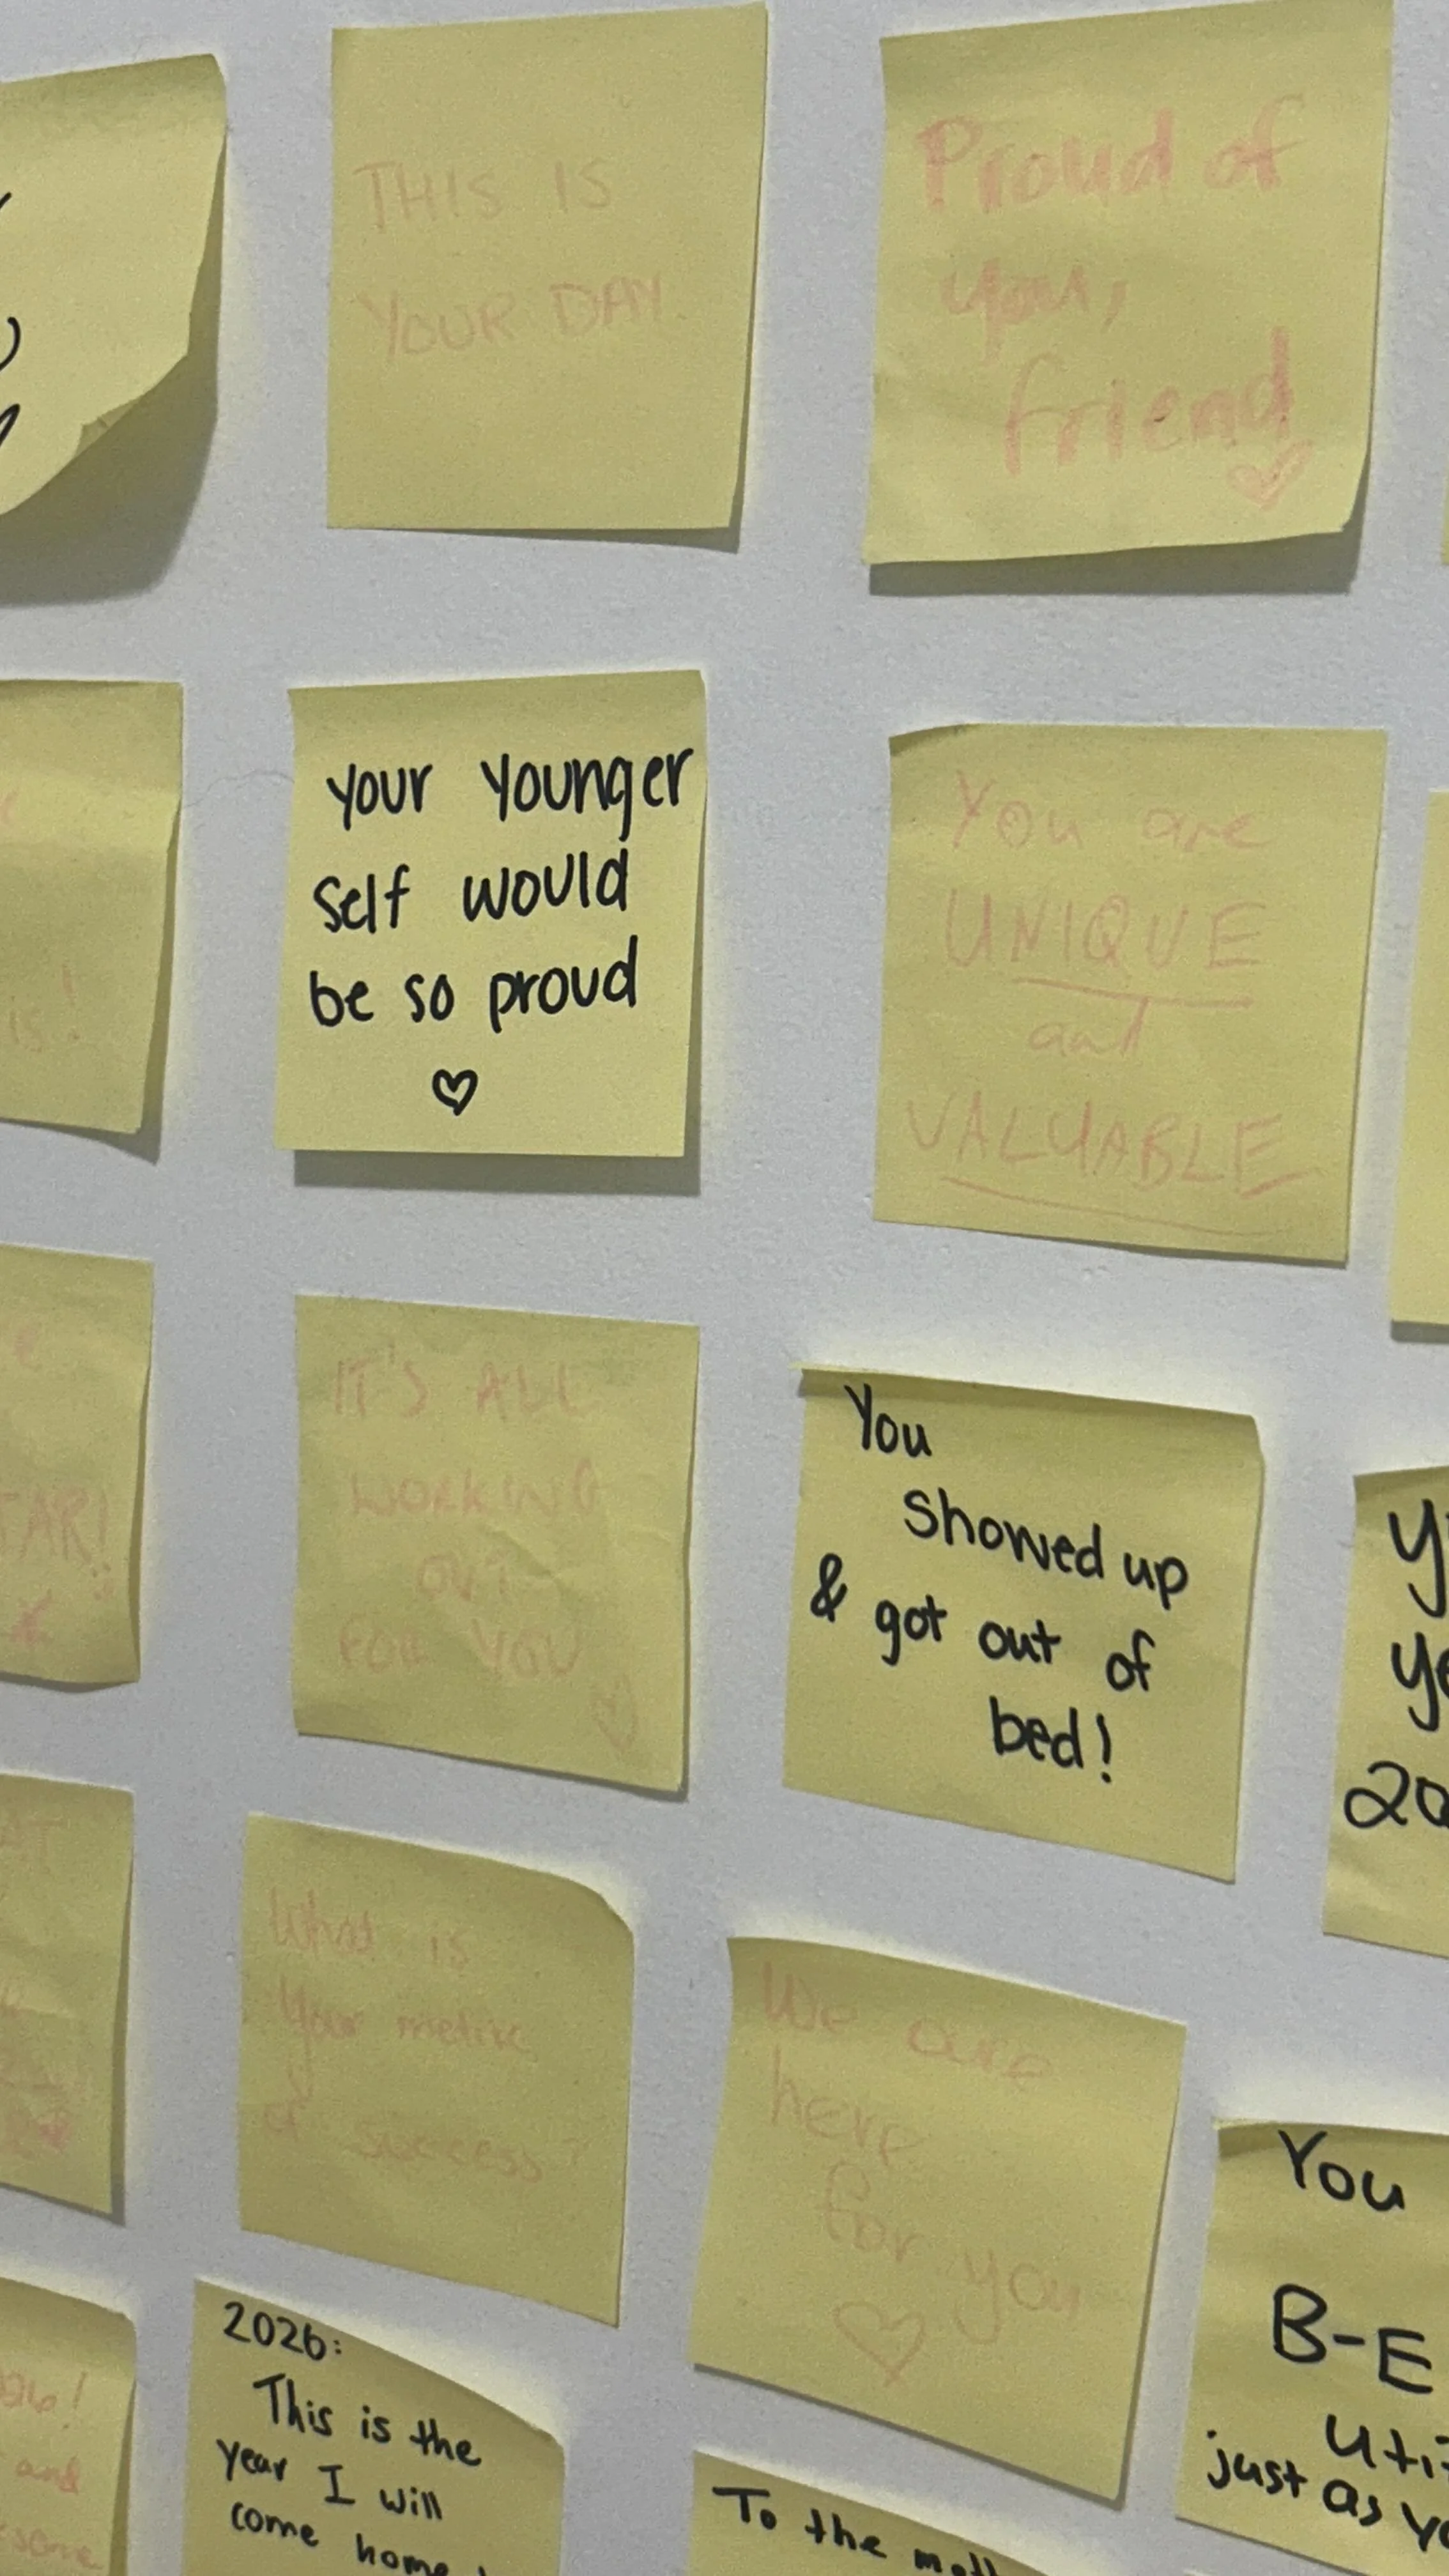 THIS IS
YOUR DAY.
Proud of
you,
friend
your younger
self would
be so proud
You are
UNIQUE
and
VALUABLE
IS!
IT'S ALL
WORKING
OUT
FOR YOU
You
showed up
& got out of
bed!
TAR!
What is
your metric
of success?
We are
here
for you
You
B-E
just as
2026:
This is the
year I will
come home
To the
and